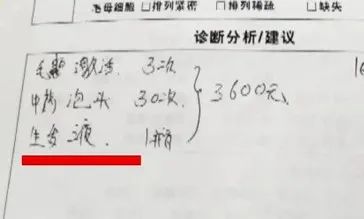 毛母细胞 □排列紧密 □排列稀疏 □缺失
诊断分析/建议
毛囊激活 3次
中药泡头 30次 3600元
生发液 1瓶